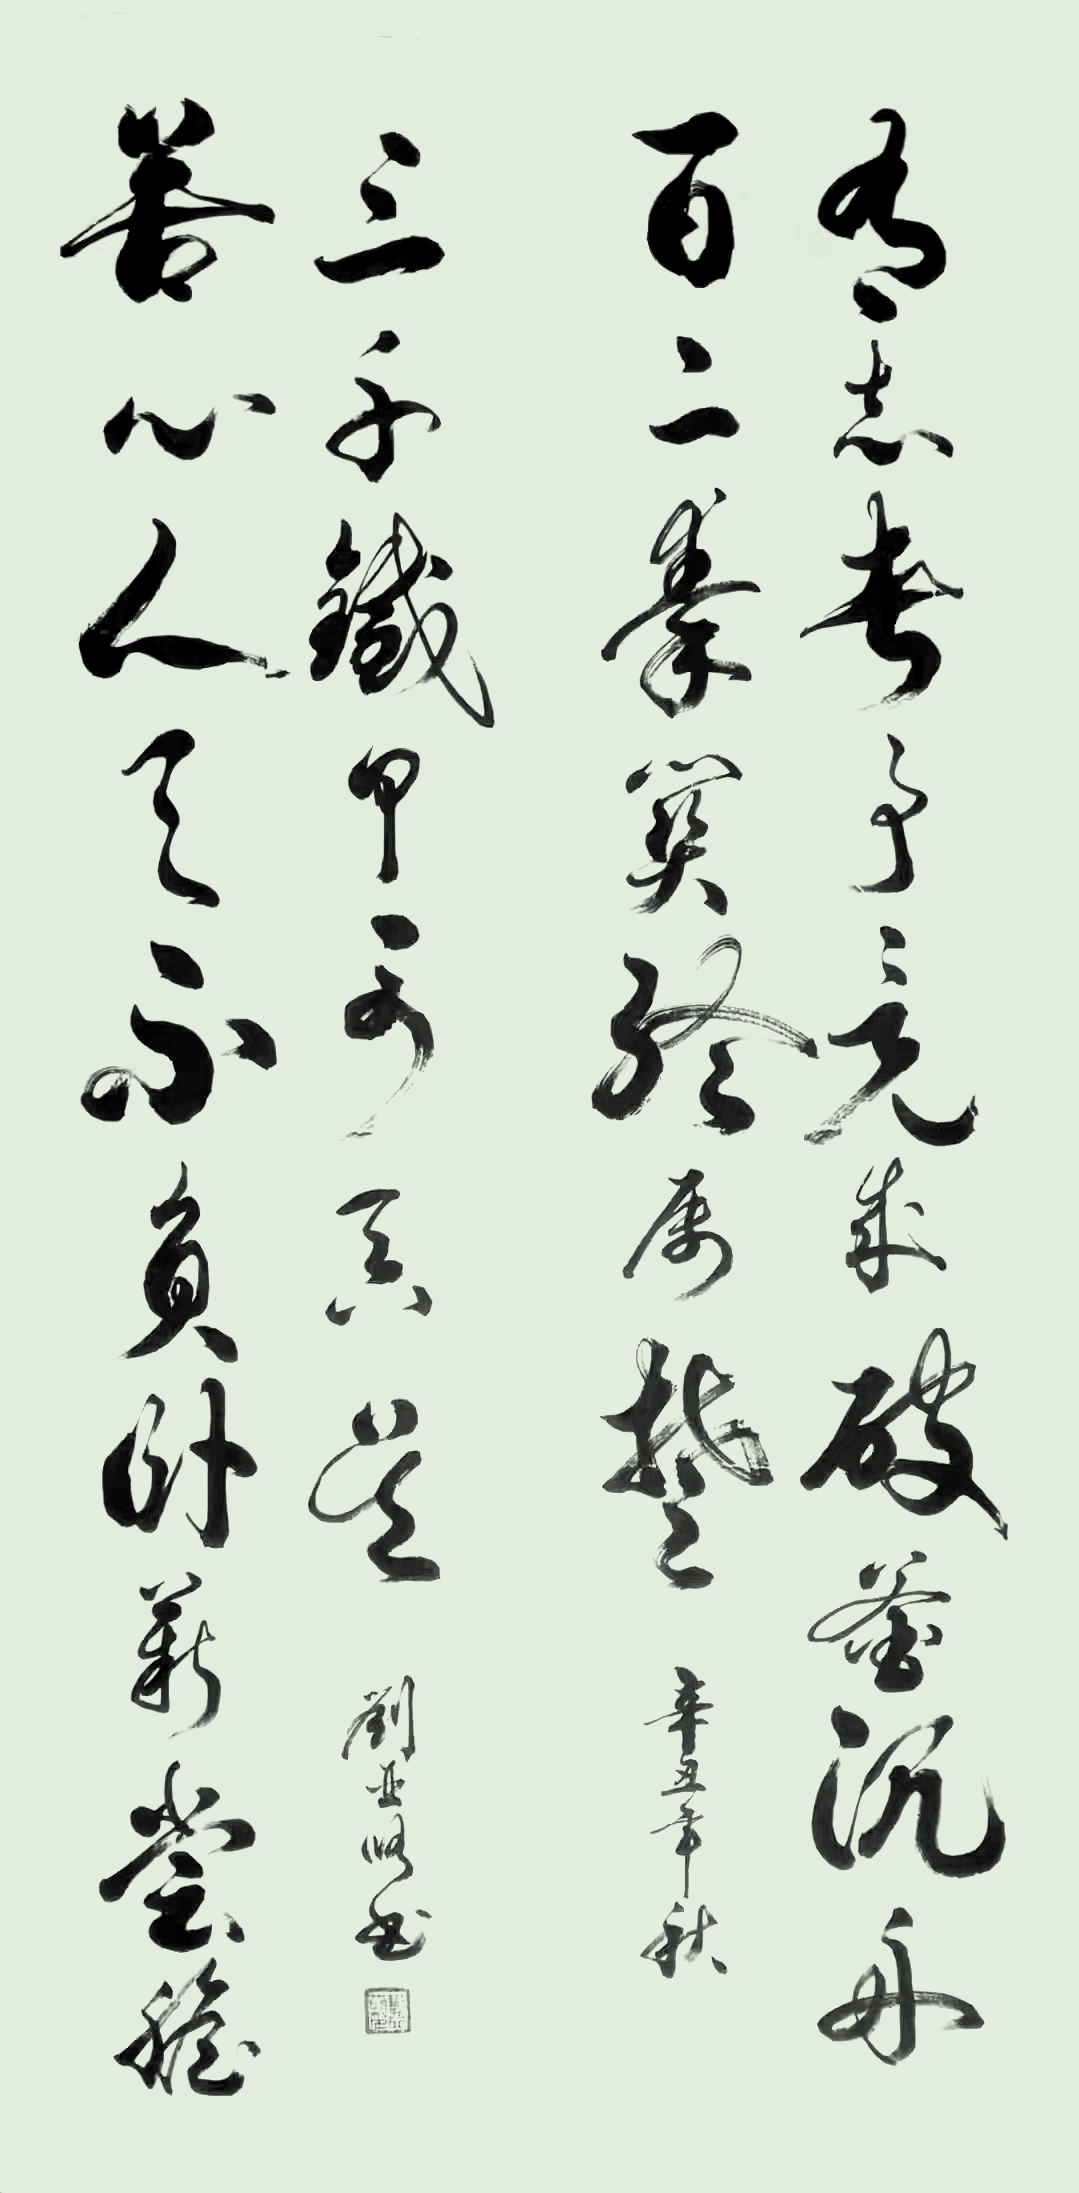 有志者事竟成破釜沉舟
百二秦關終属楚
辛丑年秋
苦心人天不負卧薪嘗膽
三千鐵甲可吞吴
劉亚书